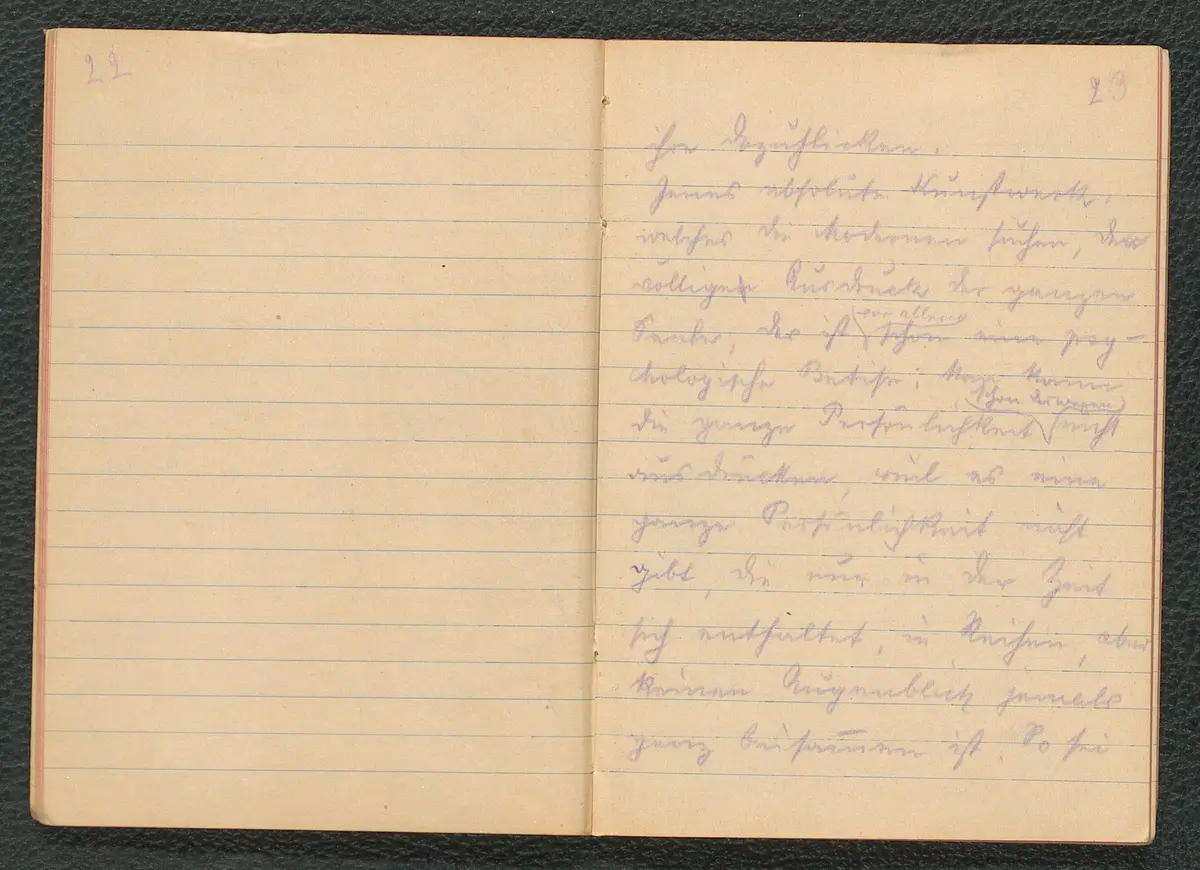 22
23
ihre dazuflicken.
Jenes absolute Kunstwerk,
welches die Modernen suchen, der
völlige Ausdruck der ganzen
vor allem
Seele, der ist schon eine psy-
chologische Betise; man kann
schon deswegen
die ganze Persönlichkeit nicht
ausdrücken, weil es eine
ganze Persönlichkeit nicht
gibt, die nur in der Zeit
sich enthaltet, in Reihen, aber
keinen Augenblick jemals
ganz beisam̅en ist. So sei